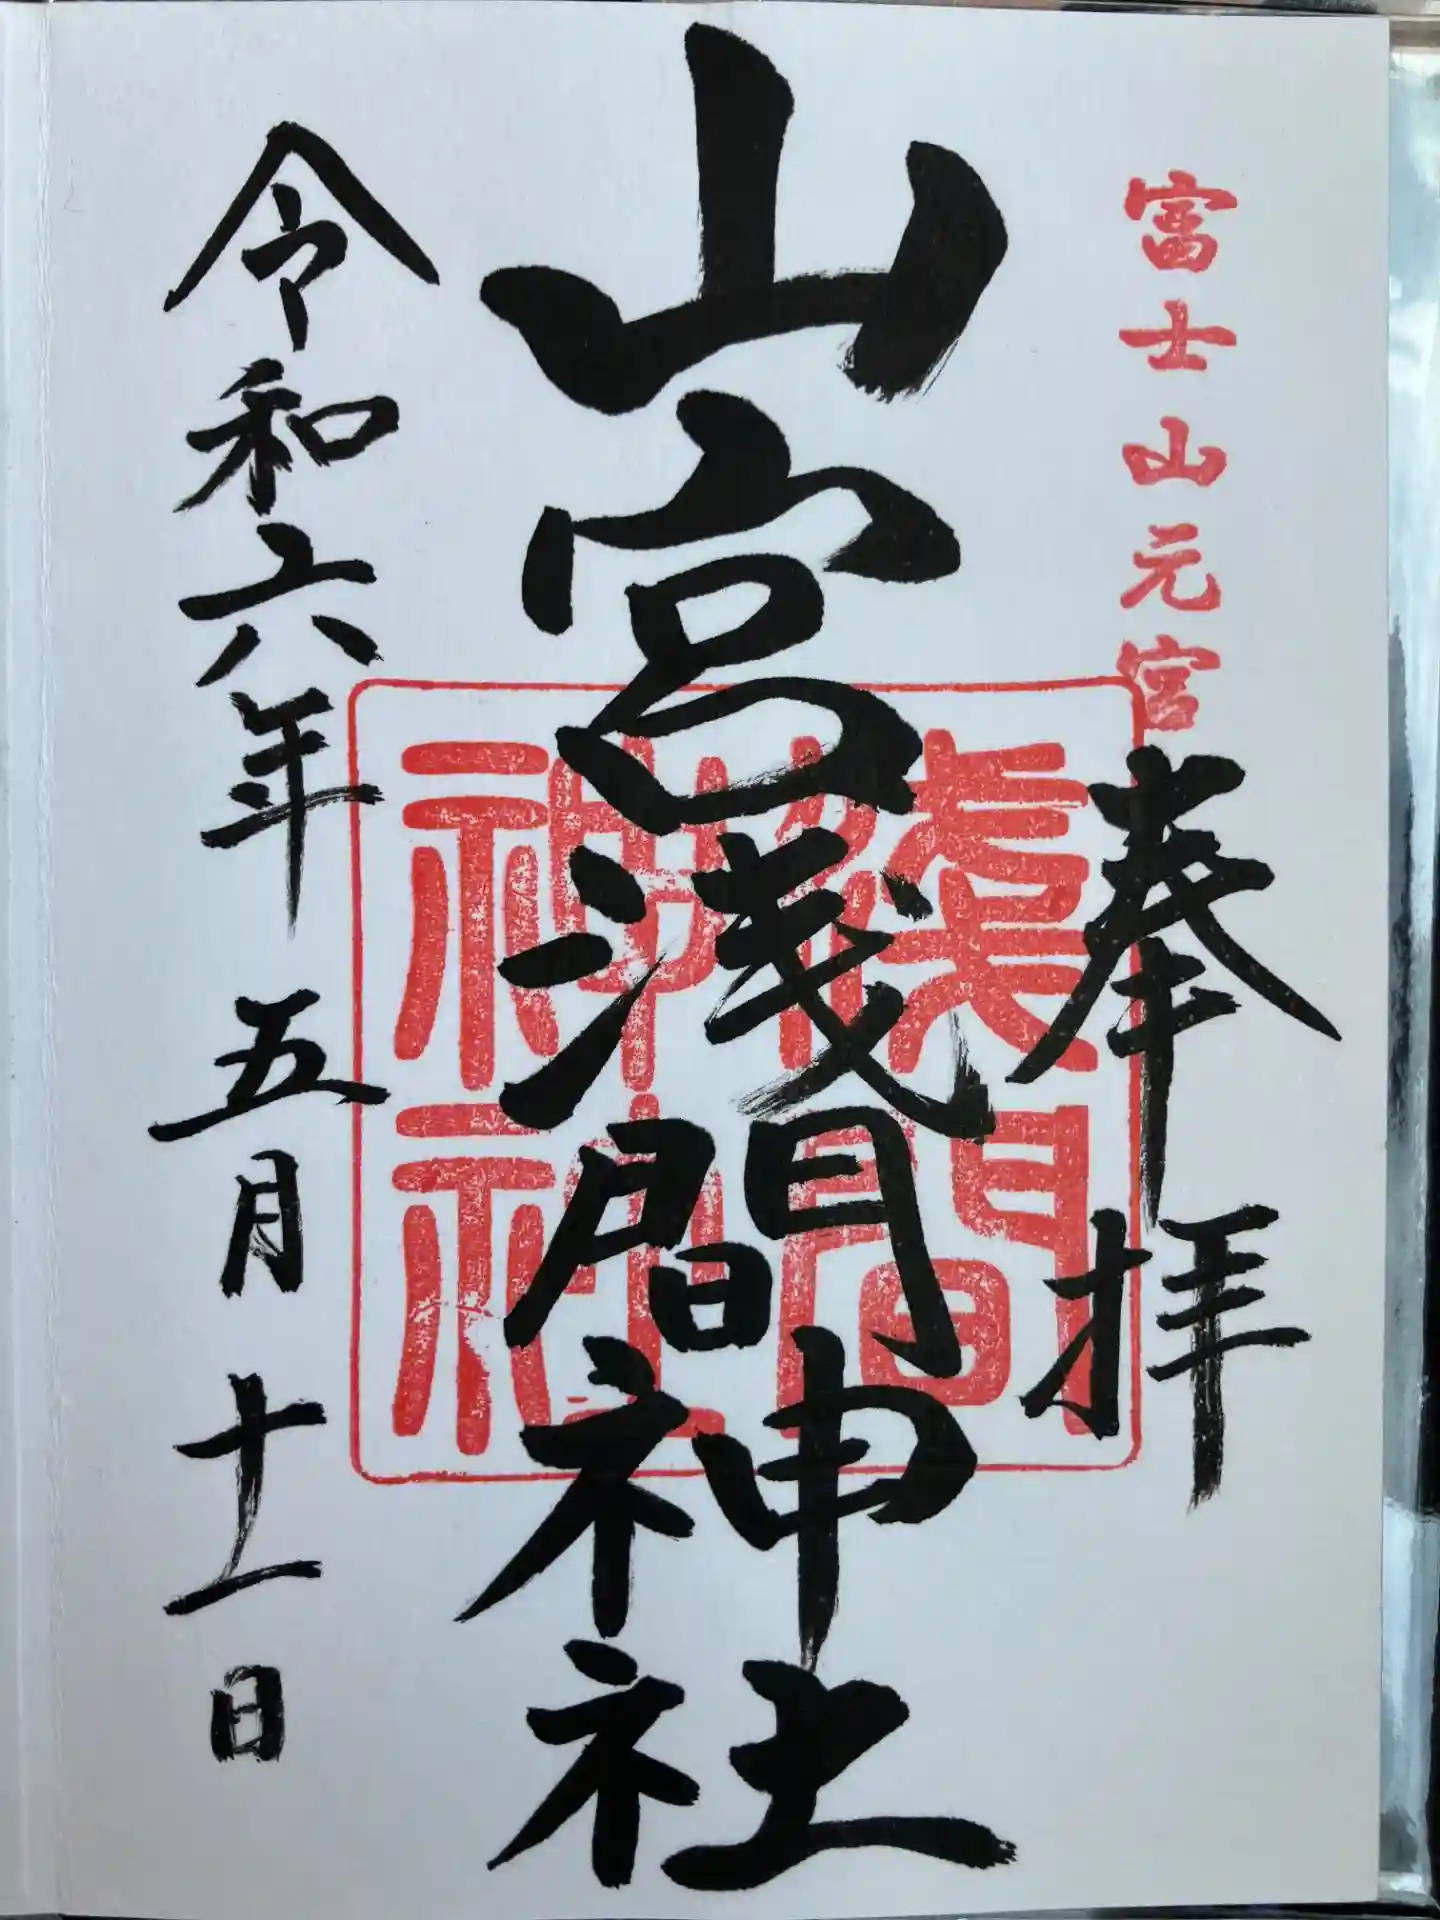 富士山元宮
奉拝
山宮浅間神社
淺間
神社
令和六年五月十一日